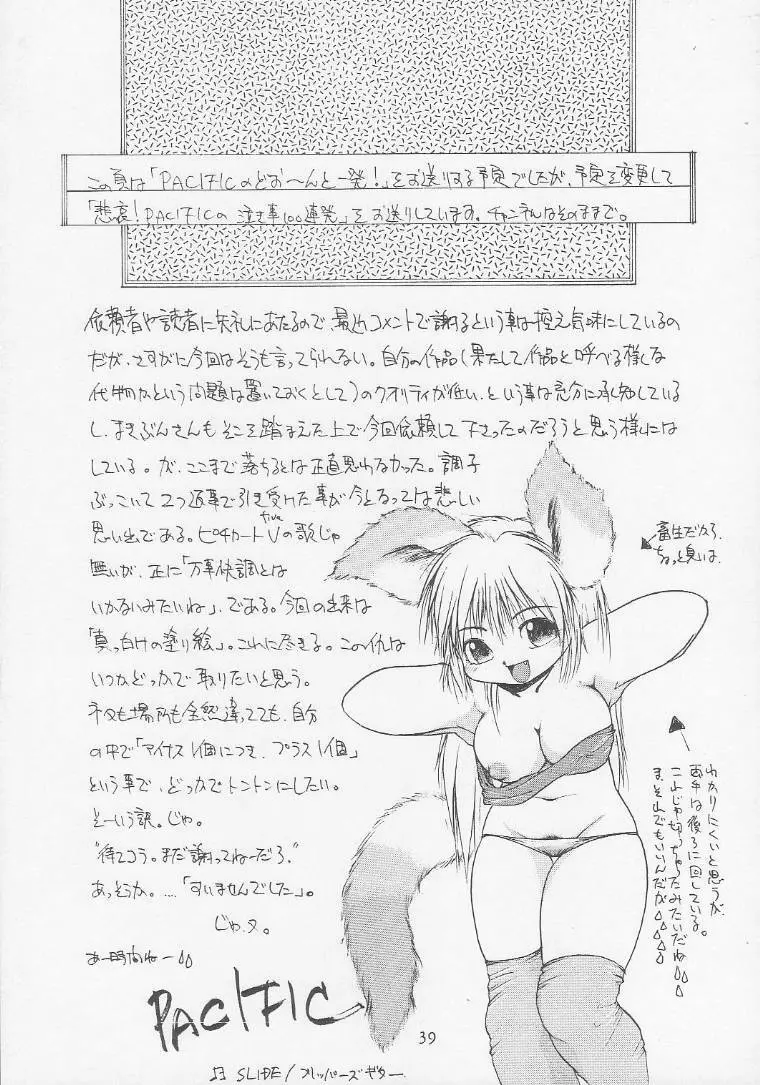 この頁は「PACIFICのどお〜んと一発!」をお送りする予定でしたが、予定を変更して
「悲哀!PACIFICの泣き事100連発」をお送りしています。チャンネルはそのままで。
依頼者や読者に失礼にあたるので、最近コメントで謝るという事は控え気味にしているの
だが、さすがに今回はそうも言ってられない。自分の作品(果たして作品と呼べる様な
代物かという問題は置いておくとして)のクオリティが低い、という事は充分に承知している
し、まきぶんさんもそこを踏まえた上で今回依頼して下さったのだろうと思う様には
している。が、ここまで落ちるとは正直思わなかった。調子
ぶっこいて2つ返事で引き受けた事が今となっては悲しい
思い出である。ピチカートVの歌じゃ
five
無いが、正に「万事快調とは
いかないみたいね」、である。今回の出来は
「真っ白けの塗り絵」。これに尽きる。この仇は
いつかどっかで取りたいと思う。
ネタも場所も全然違ってても、自分
の中で「マイナス1個につき、プラス1個」
という事で、どっかでトントンにしたい。
そーいう訳。じゃ。
"待てコラ。まだ謝ってねーだろ"
あっそうか。…「すいませんでした」。
じゃ、
あー時間ねー
PACIFIC
畜生だから
ちょっと臭いは
わかりにくいと思うが
両手は後ろに回している。
これじゃ切っちゃったみたいだね
ま、それでもいいんだが
39
SLIDE/フリッパーズギター